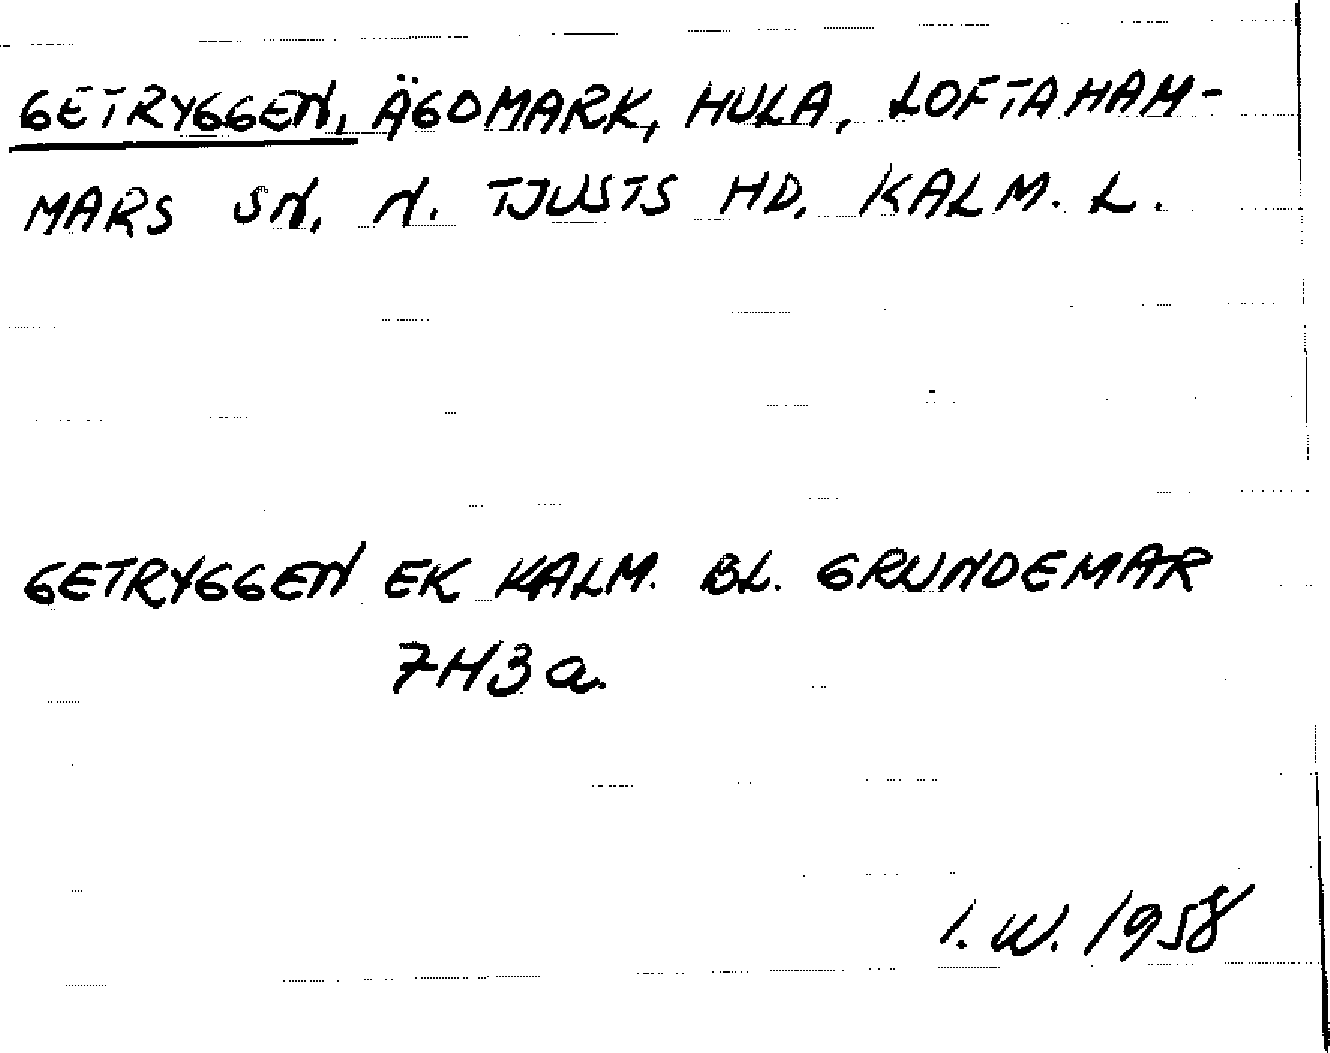 GETRYGGEN, ÄGOMARK, HULA, LOFTAHAM-
MARS SN, N. TJUSTS HD, KALM. L.
GETRYGGEN EK KALM. BL. GRUNDEMAR
7H3a.
I. W. 1958